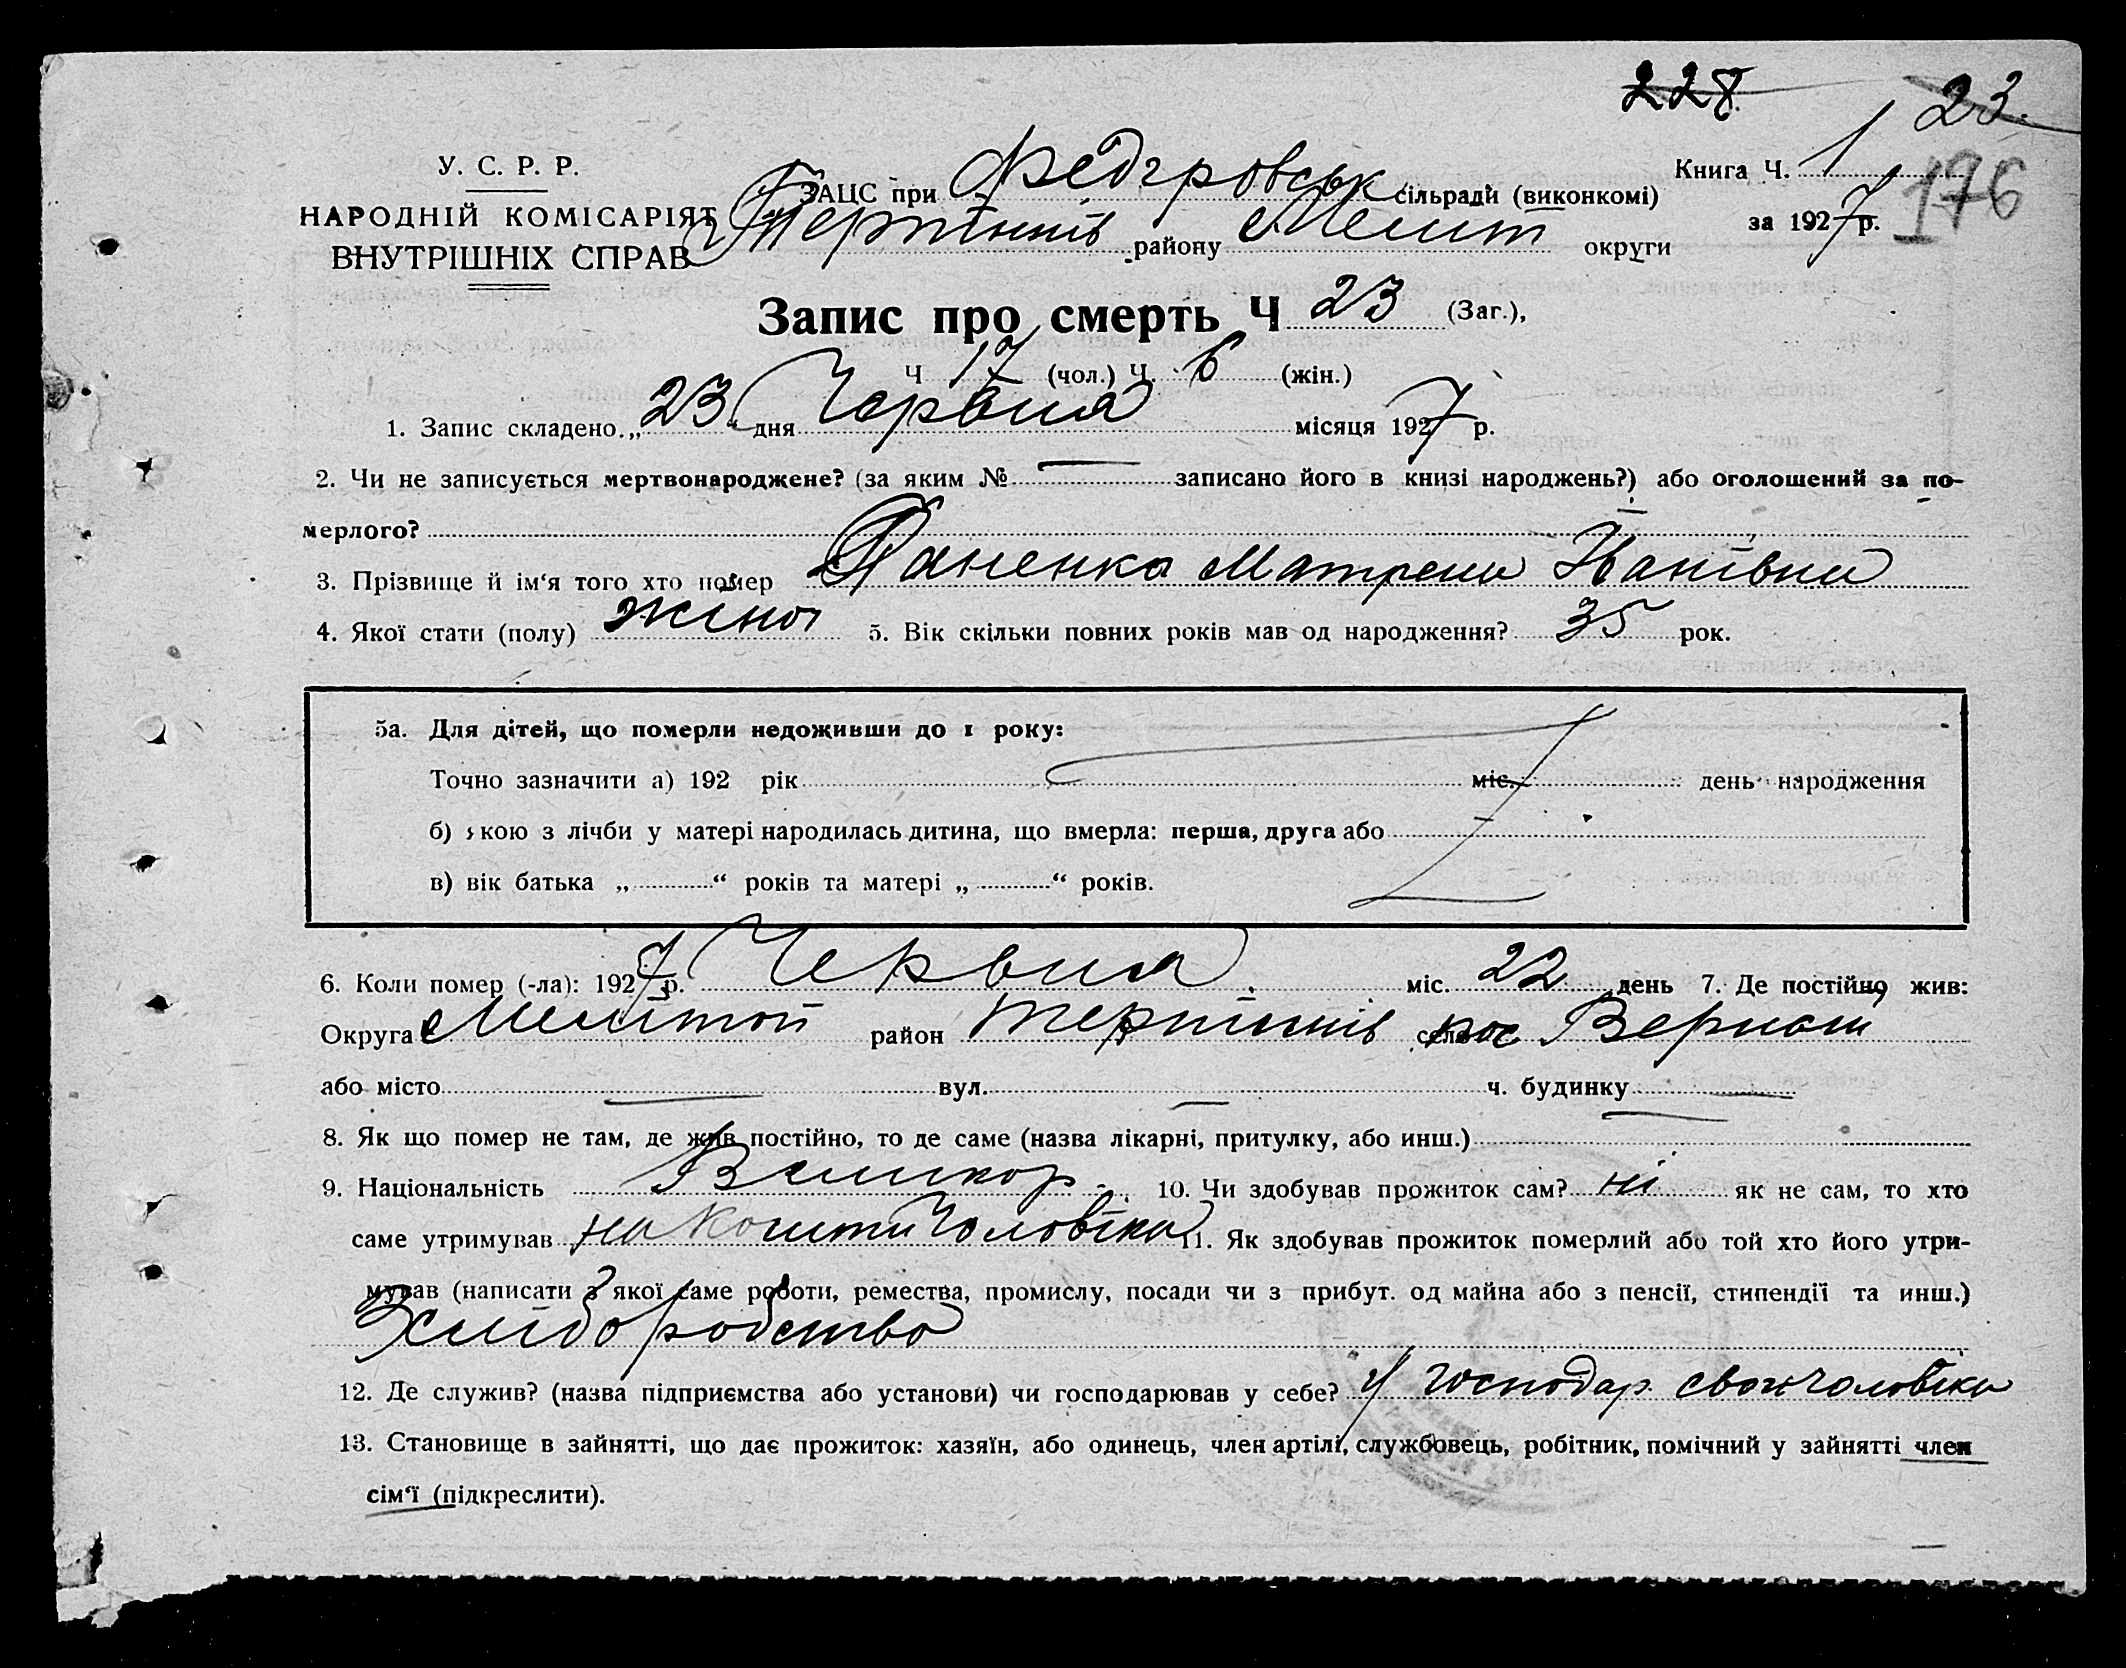 228 23.
У. С. Р. Р.
НАРОДНІЙ КОМІСАРІЯТ
ВНУТРІШНІХ СПРАВ
ЗАЦС при Федоровськ сільради (виконкомі)
Книга Ч. 1
за 1927 р.
176
Терпінків району Меліт округи
Запис про смерть Ч 23 (Заг.),
Ч 17 (чол.) Ч. 6 (жін.)
1. Запис складено „23“ дня Червня місяця 1927 р.
2. Чи не записується мертвонароджене? (за яким № — записано його в книзі народжень?) або оголошений за по-
мерлого? —
3. Прізвище й ім'я того хто помер Даненка Матрена Іванівна
4. Якої стати (полу) жіно 5. Вік скільки повних років мав од народження? 35 рок.
5а. Для дітей, що померли недоживши до 1 року:
Точно зазначити а) 192 рік міс. день народження
б) якою з лічби у матері народилась дитина, що вмерла: перша, друга або
в) вік батька „ “ років та матері „ “ років.
6. Коли помер (-ла): 1927 р. Червня міс. 22 день 7. Де постійно жив:
Округа Мелітоп район Терпінків село пос
або місто — вул. — ч. будинку —
8. Як що помер не там, де жив постійно, то де саме (назва лікарні, притулку, або инш.) —
9. Національність Великор. 10. Чи здобував прожиток сам? ні як не сам, то хто
саме утримував на кошти чоловіка 11. Як здобував прожиток померлий або той хто його утри-
мував (написати з якої саме роботи, ремества, промислу, посади чи з прибут. од майна або з пенсії, стипендії та инш.)
Хлібородство
12. Де служив? (назва підприємства або установи) чи господарював у себе? У господар. свог чоловіка
13. Становище в зайнятті, що дає прожиток: хазяїн, або одинець, член артілі, службовець, робітник, помічний у зайнятті член
сім'ї (підкреслити).